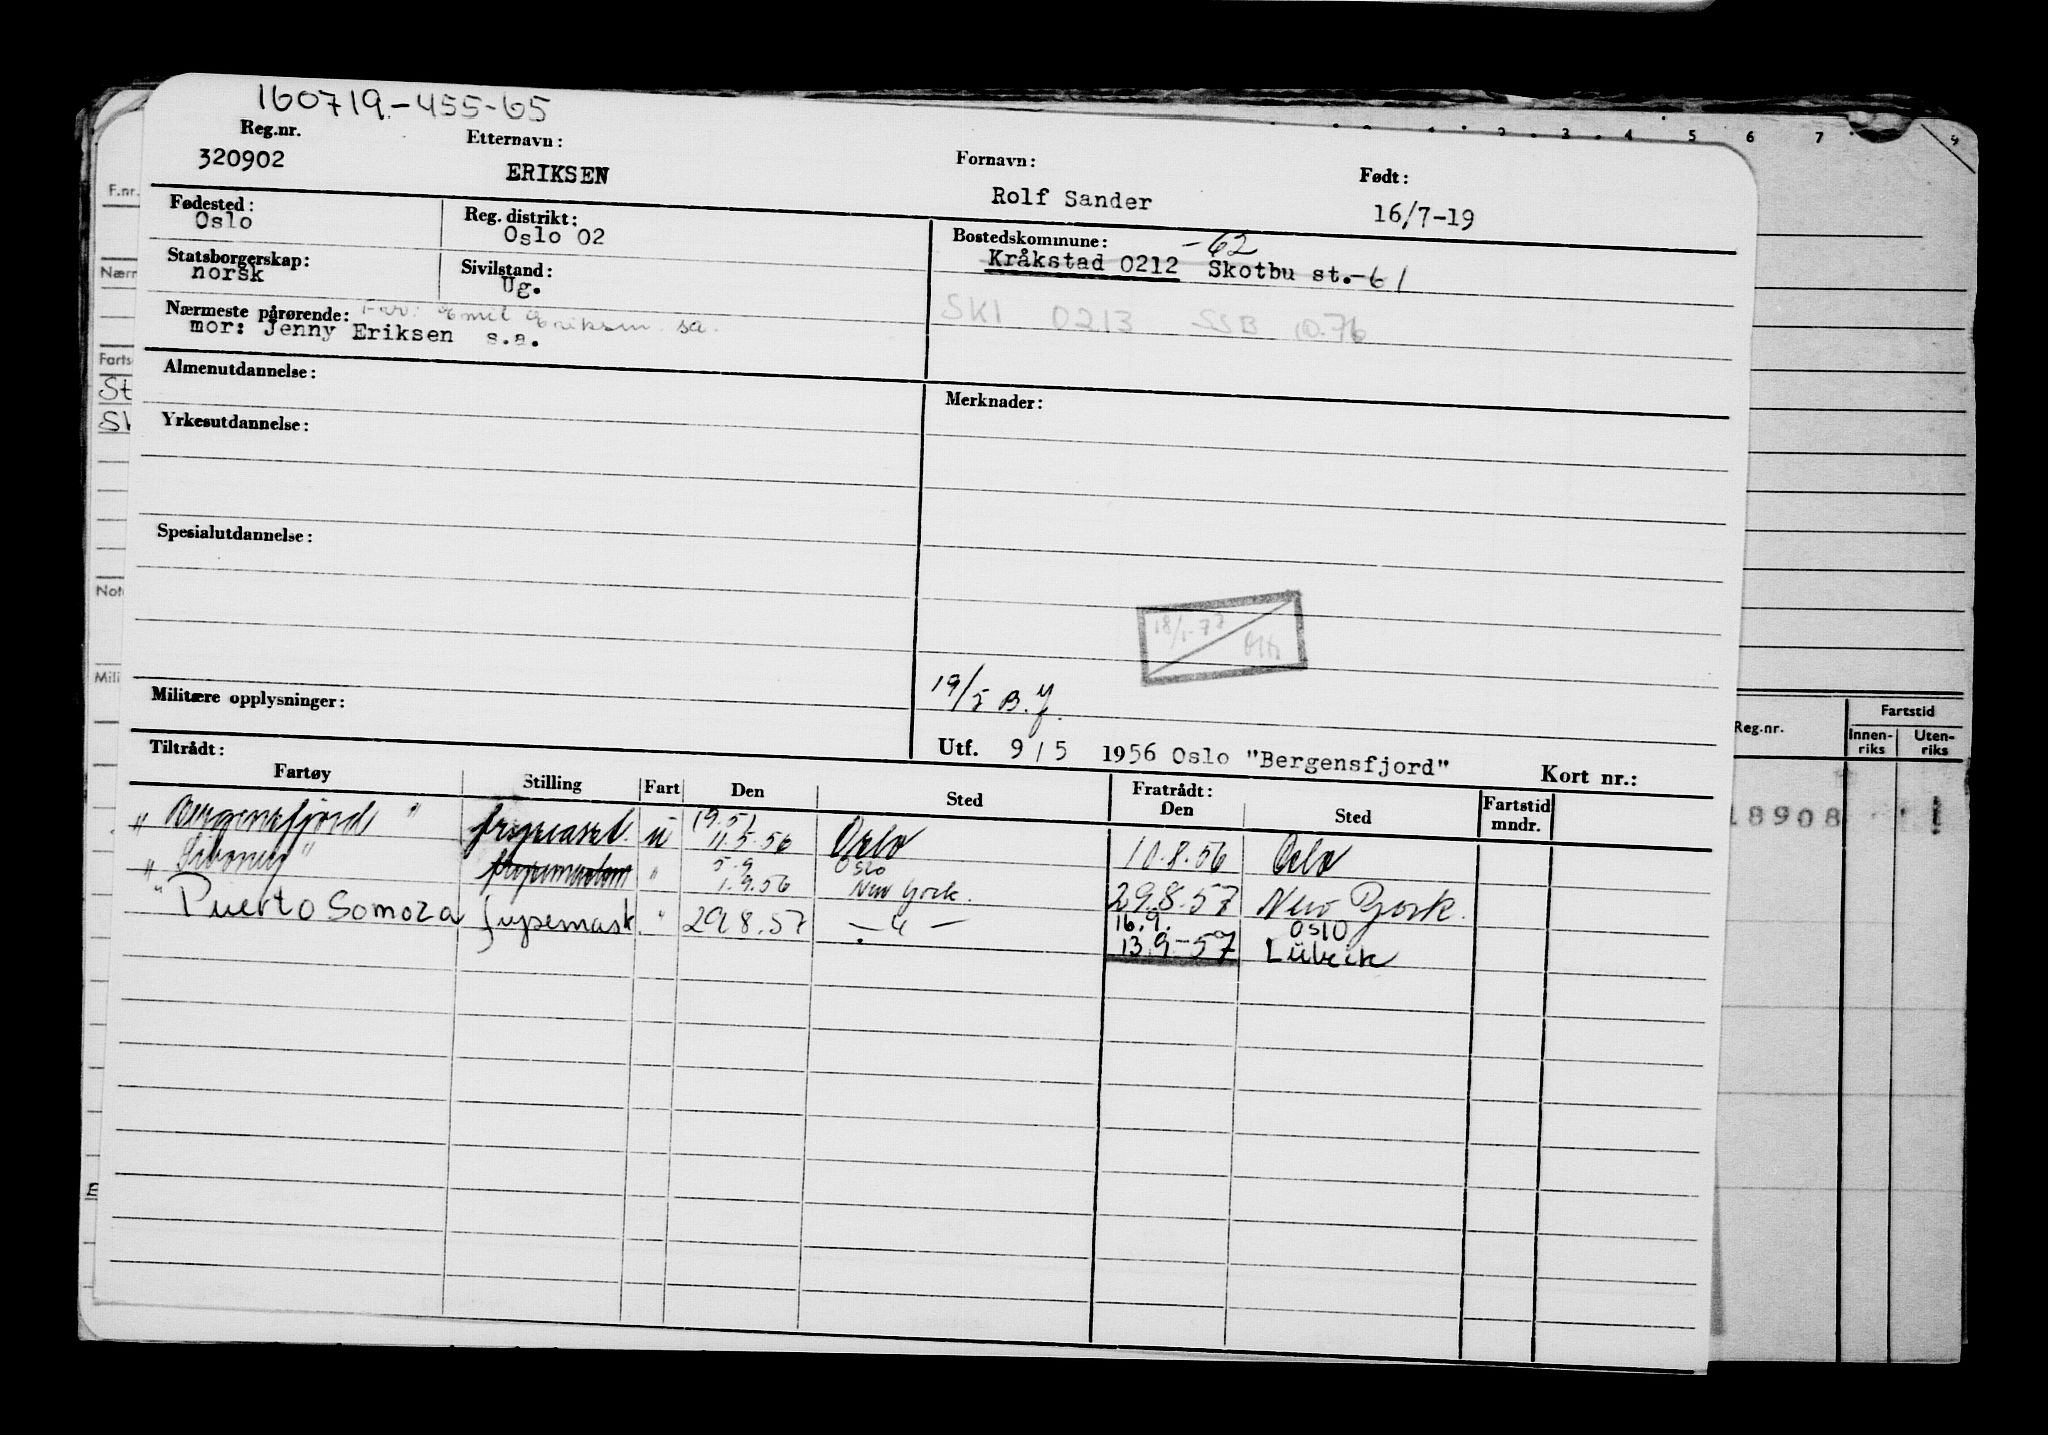 160719-455-65
Reg.nr. Etternavn: Fornavn: Født:
320902 ERIKSEN Rolf Sander 16/7-19
Fødested: Reg. distrikt: Bostedskommune: -62
Oslo Oslo 02 Kråkstad 0212 Skotbu st.-61
Statsborgerskap: Sivilstand:
norsk Ug.
SKI 0213 SSB 10.76
Nærmeste pårørende: Far: Emil Eriksen sa.
mor: Jenny Eriksen s.a.
Almenutdannelse: Merknader:
Yrkesutdannelse:
Spesialutdannelse:
18/1-77
19/5 B.
Militære opplysninger:
Utf. 9/5 1956 Oslo "Bergensfjord" Kort nr.:
Tiltrådt: Fratrådt:
Fartøy Stilling Fart Den Sted Den Sted Fartstid mndr.
19.5
" Bergensfjord " u 11.5.56 Oslo 10.8.56 Oslo
5.9 Oslo
" " " 1.9.56 New York. 29.8.57 New York.
" Puerto Somoza " 29.8.57 — " —
16.9. Oslo
13.9-57 Lübeck
F.nr.
Nærm
Farts
St
Sk
Not
Mili
E
2 3 4 5 6 7 9
Reg.nr. Fartstid
Innen-
riks
Uten-
riks
18908